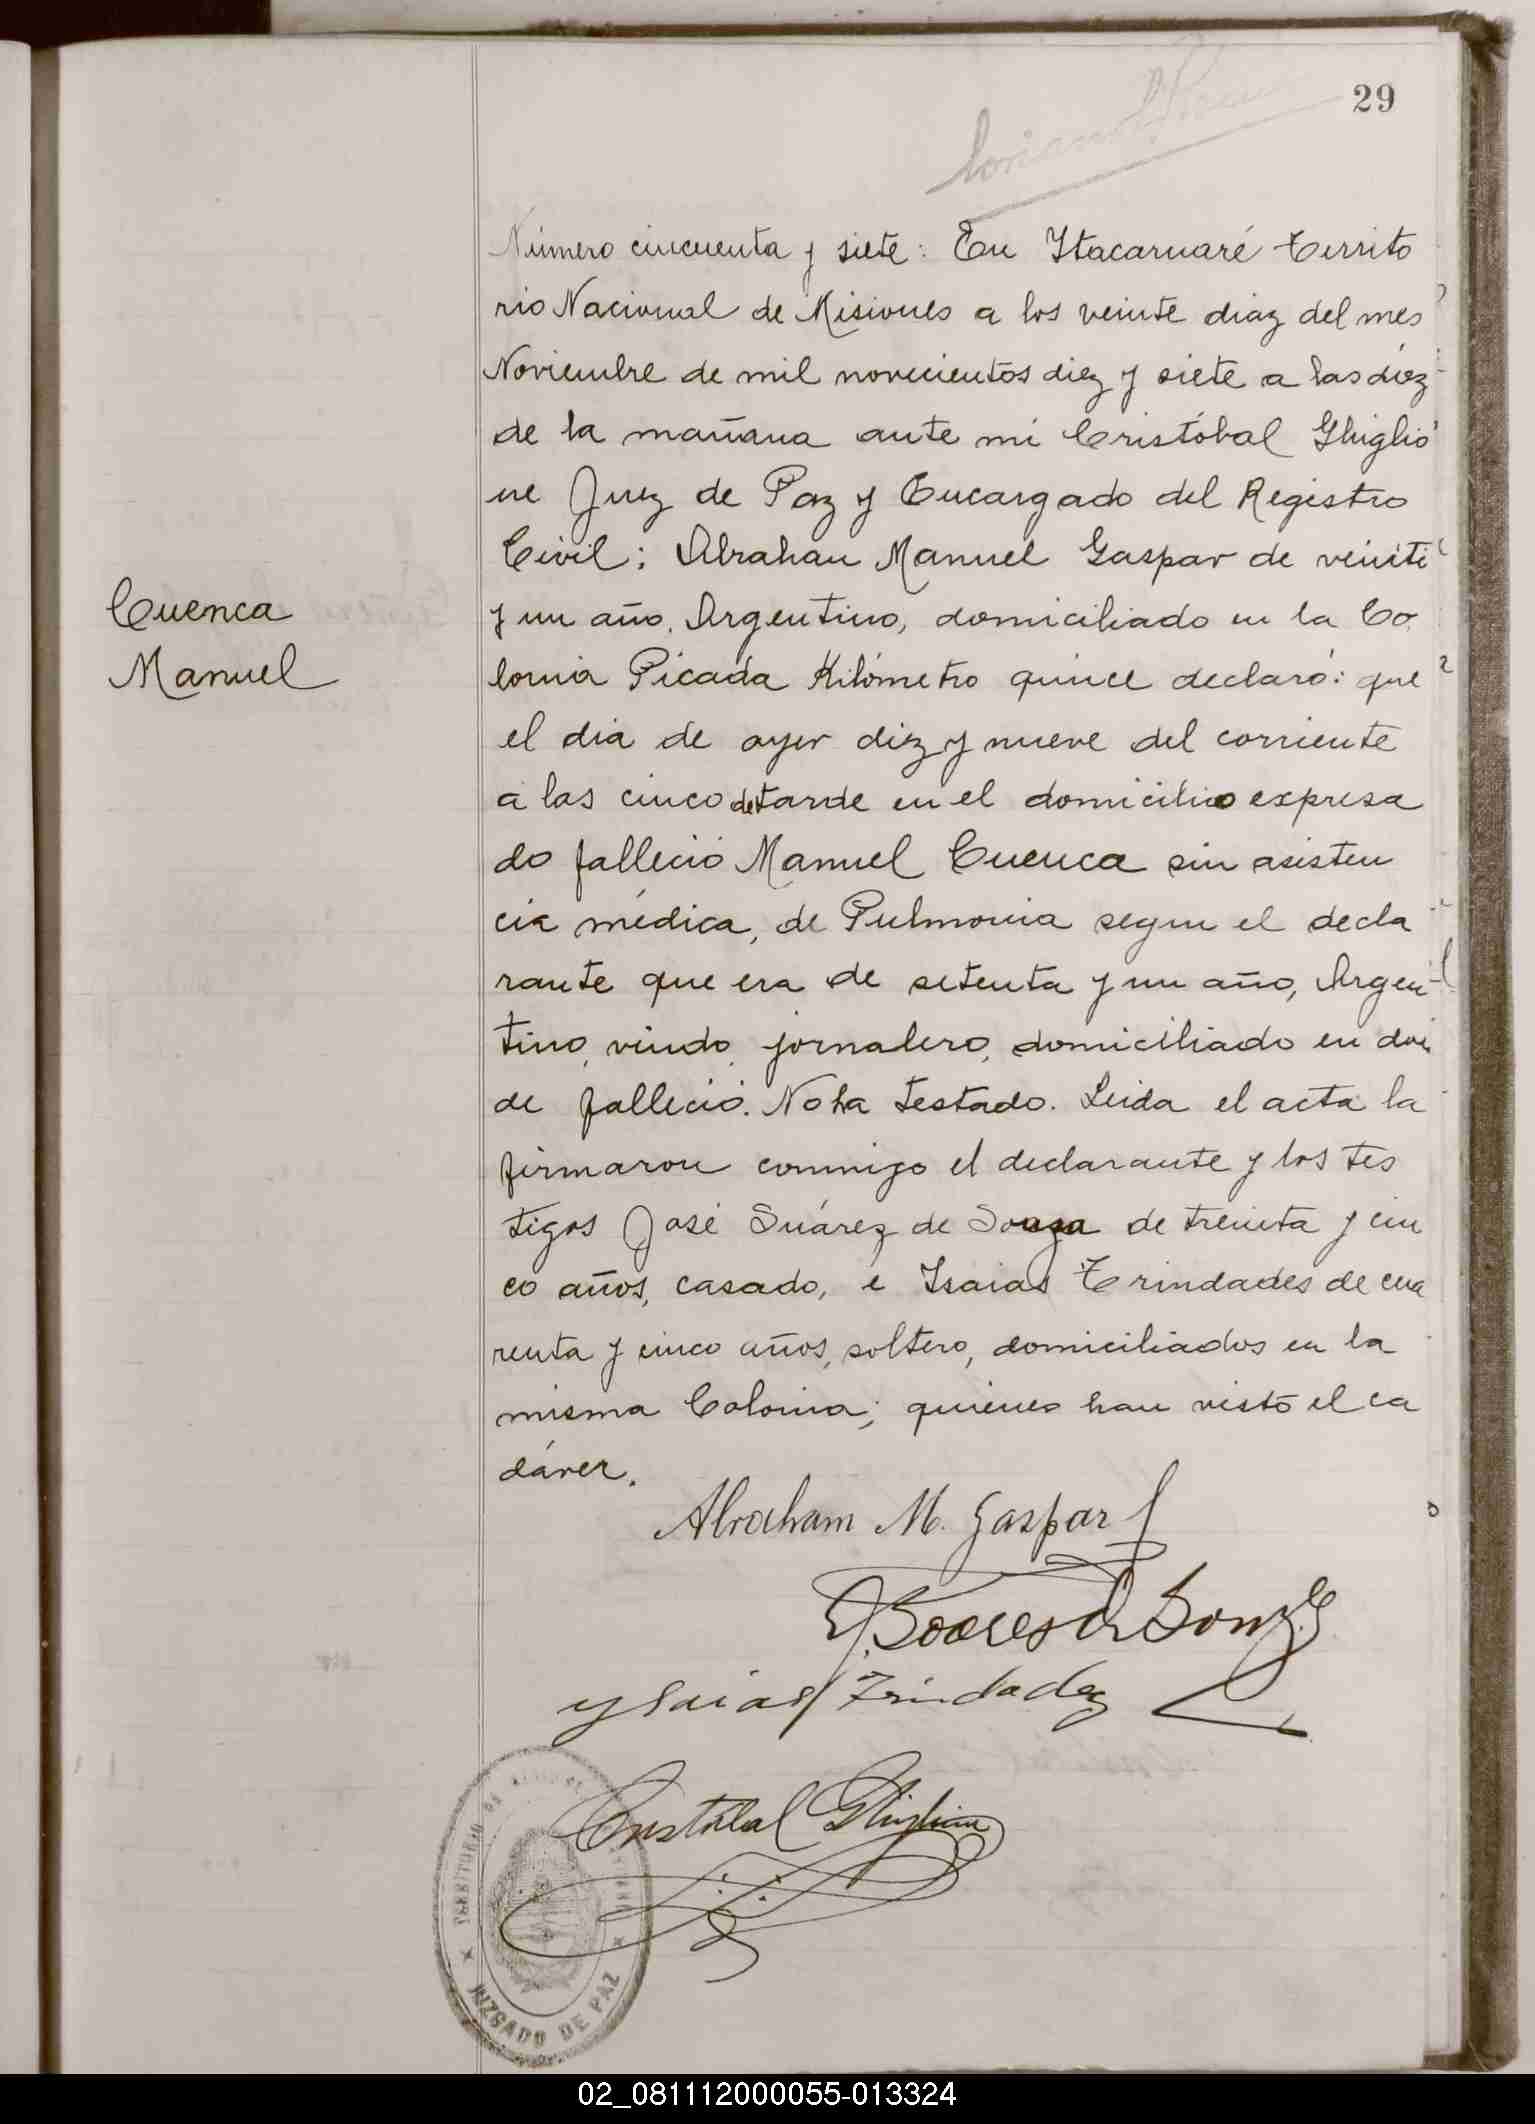 29
Número cincuenta y siete: En Itacaruaré Territo
rio Nacional de Misiones a los veinte diaz del mes
Noviembre de mil novecientos diez y siete a las diez
de la mañana ante mi Cristóbal Ghiglio
ne Juez de Paz y Encargado del Registro
Civil; Abrahan Manuel Gaspar de veinti
y un año, Argentino, domiciliado en la Co
lonia Picada Kilómetro quince declaró: que
el dia de ayer diez y nueve del corriente
a las cinco de tarde en el domicilio expresa
do falleció Manuel Cuenca sin asisten
cia médica, de Pulmonia segun el decla
rante que era de setenta y un año, Argen
tino, viudo, jornalero, domiciliado en don
de falleció. No ha testado. Leida el acta la
firmaron conmigo el declarante y los tes
tigos José Suárez de Souza de treinta y cin
co años, casado, é Isaias Trindades de cua
renta y cinco años, soltero, domiciliados en la
misma Colonia; quienes han visto el ca
dáver.
Cuenca
Manuel
Abraham M. Gaspar
J. Soares de Souza
Ysaias Trindadez
Cristóbal Ghiglione
TERRITORIO DE
JUZGADO DE PAZ
02_081112000055-013324